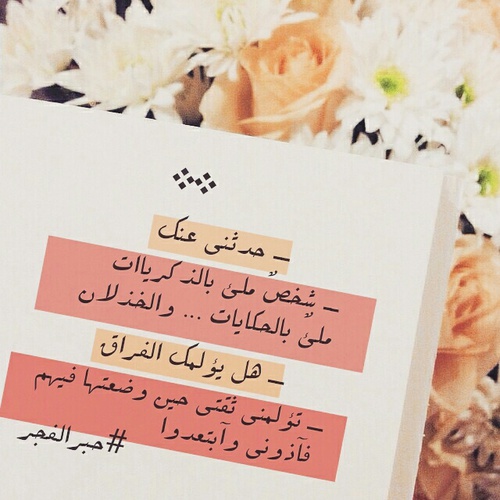 _ حدثنى عنك
_ شخصٌ ملئ بالذكرياات
ملئٌ بالحكايات ... والخذلان
_ هل يؤلمك الفراق
_ تؤلمنى ثقتى حين وضعتها فيهم
فآذونى وآبتعدوا
#حبرالفجر